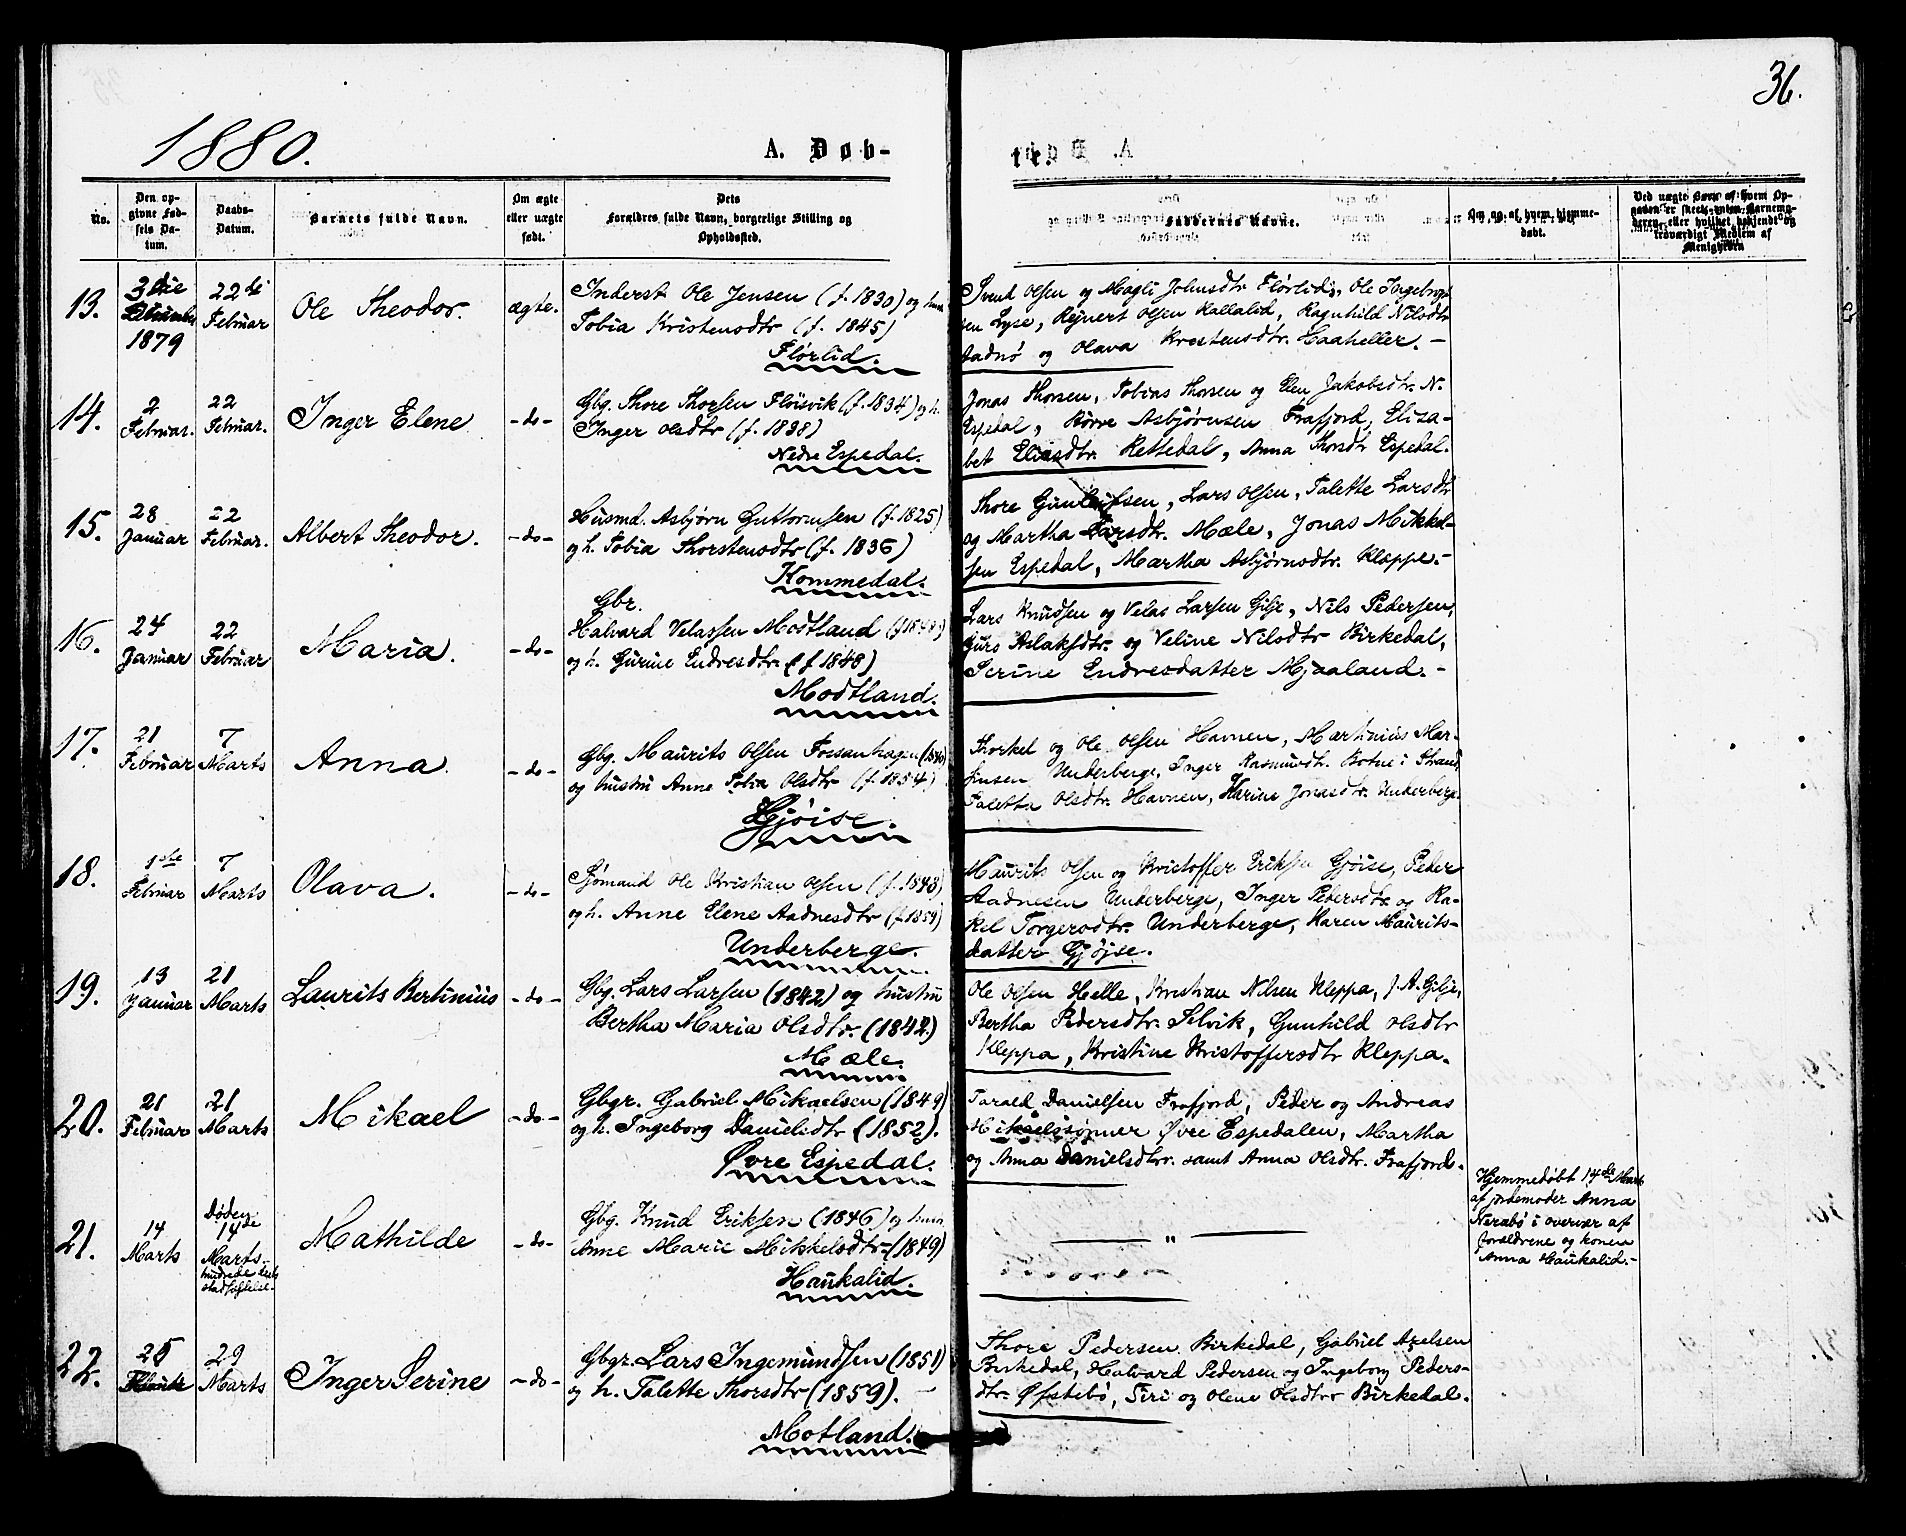 36.
1880.
A. Døb-
te.
No.
Den op-
givne Fød-
sels Da-
tum.
Daabs-
Datum.
Barnets fulde Navn.
Om ægte
eller uægte
født.
Dets
Forældres fulde Navn, borgerlige Stilling og
Opholdssted.
Faddernes Navne.
Om og af hvem hjemme-
døbt.
Menigheden
13.
3die
1879
22de
Februar
Ole Theodor.
ægte.
Inderst Ole Jensen (f. 1830) og hustru
Tobia Kristensdtr (f. 1845)
Flørlid.
Svend Olsen og Magli Johnsdtr Flørlid, Ole Ingebrigt-
sen Lyse, Rejnert Olsen Kallalid, Ragnhild Nilsdtr
og Olava Krestensdtr. Haaheller. -
14.
2
Februar.
22
Februar.
Inger Elene
-do-
Gbg. Thore Thorsen Fløisvik (f. 1834) og h.
Inger Olsdtr (f. 1838)
Nedre Espedal.
Jonas Thorsen, Tobias Thorsen og Elen Jakobsdtr. N.
Espedal, Børre Asbjørnsen Frafjord, Eliza-
bet Eliasdtr. Rettedal, Anna Thorsdtr Espedal.
15.
28
Januar
22
Februar.
Albert Theodor.
-do-
Husmd. Asbjørn Guttormsen (f. 1825)
og h. Tobia Thorstensdtr (f. 1836)
Kommedal.
Thore Gunleifsen, Lars Olsen, Talette Larsdtr
og Martha Larsdtr. Mæle, Jonas Mikkel-
sen Espedal, Martha Asbjørnsdtr. Kleppe. -
16.
24
Januar
22
Februar
Maria.
-do-
Gbr.
Halvard Velassen Modtland (f 1848)
og h. Gurine Endresdtr. (f 1848)
Modtland.
Lars Knudsen og Velas Larsen Gilje, Nils Pedersen,
Guro Aslaksdtr. og Veline Nilsdtr Birkedal,
Serine Endresdatter Mjaaland. -
17.
21
Februar
7
Marts
Anna.
-do-
Gbg. Maurits Olsen Fossanhagen
og hustru Anne Tobia Olsdtr (f. 1854)
Gjøise.
Thorkel og Ole Olsen Havnen, Martinius Mar-
tinsen Underberge, Inger Rasmusdtr. Botne i Strand,
Taletta Olsdtr. Havnen, Karine Jonasdtr. Underberge.
18.
1ste
Februar
7
Marts
Olava.
-do-
Sjømand Ole Kristian Olsen (f. 1848)
og h. Anne Elene Aadnesdtr (f. 1859)
Underberge.
Maurits Olsen og Kristoffer Eriksen Gjøise, Peder
Aadnesen Underberge, Inger Pedersdtr og Ra-
kel Torgersdtr. Underberge, Karen Maurits-
datter Gjøjse.
19.
13
Januar
21
Marts
Laurits Bertinius
-do-
Gbg. Lars Larsen (1842) og hustru
Bertha Maria Olsdtr. (1842)
Mæle.
Ole Olsen Helle, Kristian Nilsen Kleppa, J. A. Gilje,
Bertha Pedersdtr. Selvik, Gunhild Olsdtr
Kleppa, Kristine Kristoffersdtr Kleppa.
20.
21
Februar
21
Marts
Mikael
-do-
Gbgr. Gabriel Mikaelsen (1849)
og h. Ingeborg Danielsdtr (1852).
Øvre Espedal.
Tarald Danielsen Frafjord, Peder og Andreas
Mikaelssønner Øvre Espedalen, Martha
og Anna Danielsdtr. samt Anna Olsdtr. Frafjord.
21.
14
Marts
Døden
14de
Marts.
Mathilde
-do-
Gbg. Knud Eriksen (1846) og hustru
Anne Marie Mikkelsdtr (1849)
Haukalid.
— „ —
Hjemmedøbt 14de Marts
af jordemoder Anna
Nerabø i overvær af
forældrene og konen
Anna Haukalid. -
22.
25
29
Marts
Inger Serine
-do-
Gbgr. Lars Ingemundsen (1851)
og h. Talette Thorsdtr (1859). -
Motland.
Thore Pedersen Birkedal, Gabriel Axelsen
Birkedal, Halvard Pedersen og Ingeborg Peders-
dtr. Øfstebø, Siri og Olene Olsdtr Birkedal.